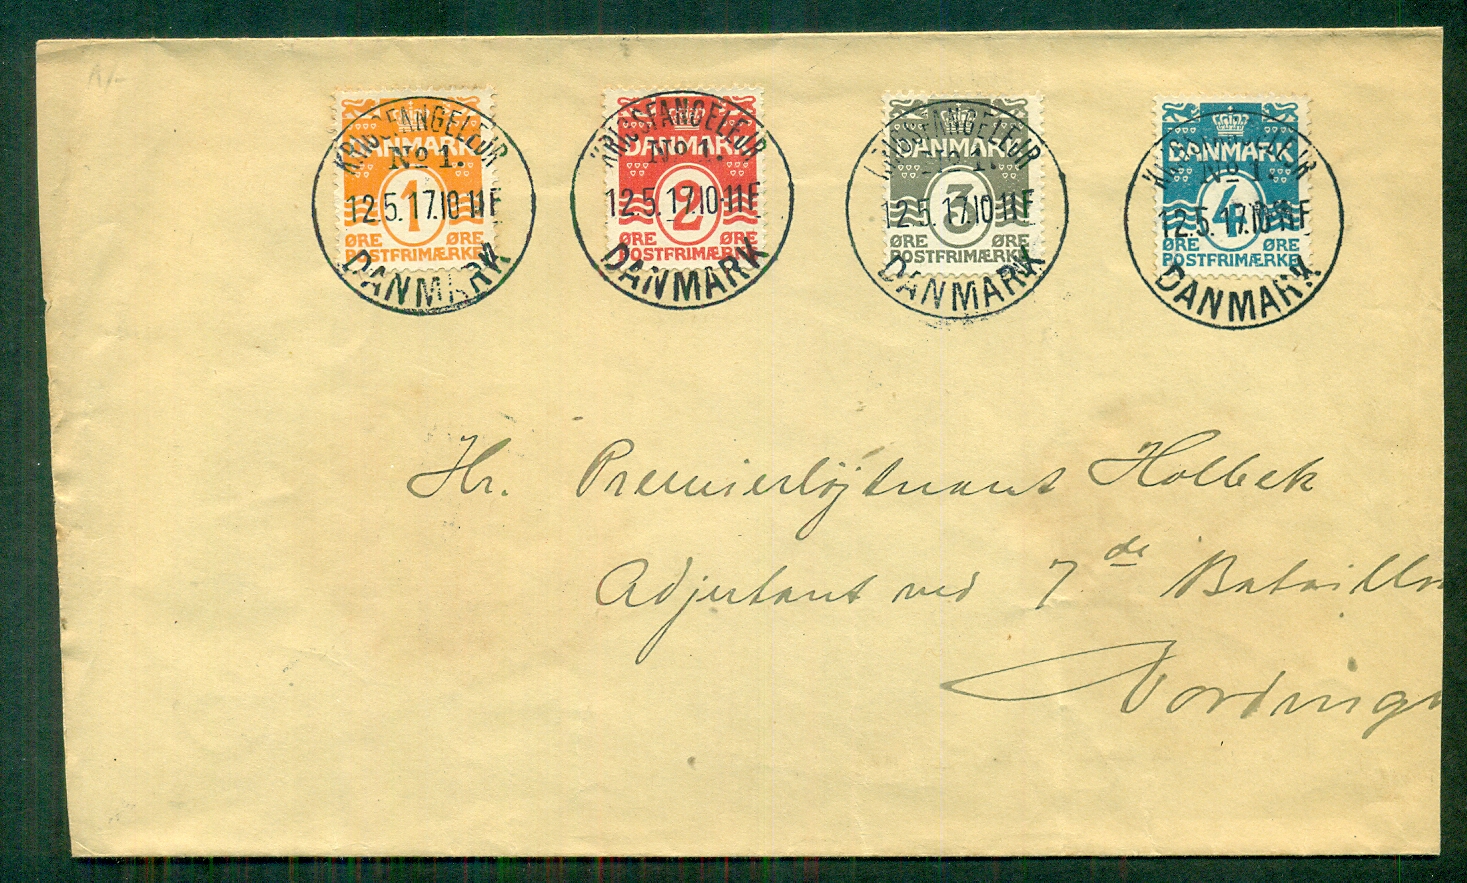 KRIGSFANGELEJR
No 1.
12.5.17.10-11 F
DANMARK
DANMARK
1
ØRE ØRE
POSTFRIMÆRKE
KRIGSFANGELEJR
No 1.
12.5.17.10-11 F
DANMARK
DANMARK
2
ØRE ØRE
POSTFRIMÆRKE
KRIGSFANGELEJR
No 1.
12.5.17.10-11 F
DANMARK
DANMARK
3
ØRE ØRE
POSTFRIMÆRKE
KRIGSFANGELEJR
No 1.
12.5.17.10-11 F
DANMARK
DANMARK
4
ØRE ØRE
POSTFRIMÆRKE
Hr. Premierløjtnant Holbek
Adjutant ved 7 de Bataillo
Vording